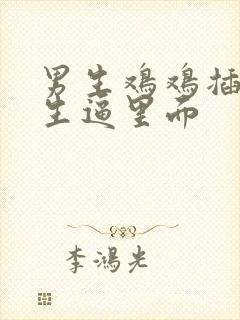 男生鸡鸡插
生逼里而
李鸿光